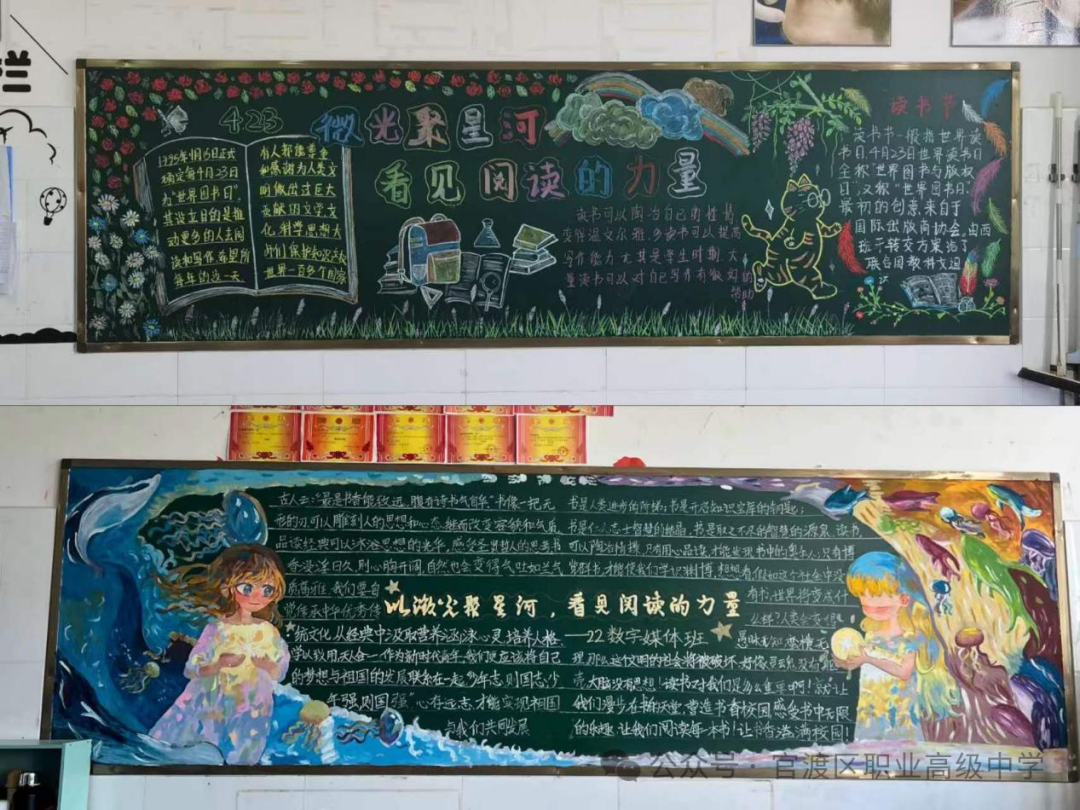 栏
4.23
微光聚星河
看见阅读的力量
1995年11月15日正式
确定每年4月23日
为"世界图书日",
其设立目的是推
动更多的人去阅
读和写作,希望所
有人都能尊重
和感谢为人类文
明做出过巨大
贡献的文学,文
化,科学,思想大
读书可以陶冶自己的性情
变得温文尔雅,多读书可以提高
写作能力尤其是学生时期,大
量读书可以对自己写作有很好的
帮助
读书节
读书节一般指世界读
书日,4月23日世界读书日
全称"世界图书与版权
日",又称"世界图书日".
最初的创意来自于
国际出版商协会,由西
班牙转交方案给了
联合国教科文组
古人云:"最是书香能致远,腹有诗书气自华."书像一把无
形的刀,可以雕刻人的思想和心态,继而改变容貌和气质.
品读经典可以沐浴思想的光华,感受圣贤哲人的思想书
香浸淫日久,则心胸开阔,自然也会变得气吐如兰,气
质高雅.我们要自
觉传承中华优秀传
统文化,从经典中汲取营养,涵泳心灵,培养人格,
学以致用,天人合一.作为新时代青年,我们更应该将自己
的梦想与祖国的发展联系在一起."少年志则国志,少
年强则国强"心存远志,才能实现祖国
与我们共同发展
以微光聚星河,看见阅读的力量
——22数字媒体班
书是人类进步的阶梯;书是开启知识宝库的钥匙;
书是仁人志士智慧的结晶,书是取之不尽的智慧的源泉.读书,
可以陶冶情操,只有用心品读,才能发现书中的奥妙;只有博
览群书,才能使我们学识渊博.想想看,假如这个社会中没
有书,世界将变成什
么样?人类会变得
愚昧无知,蛮横无
理,那么这个文明的社会将被破坏.
让我们阅读每一本书!让书香溢满校园!
公众号·官渡区职业高级中学